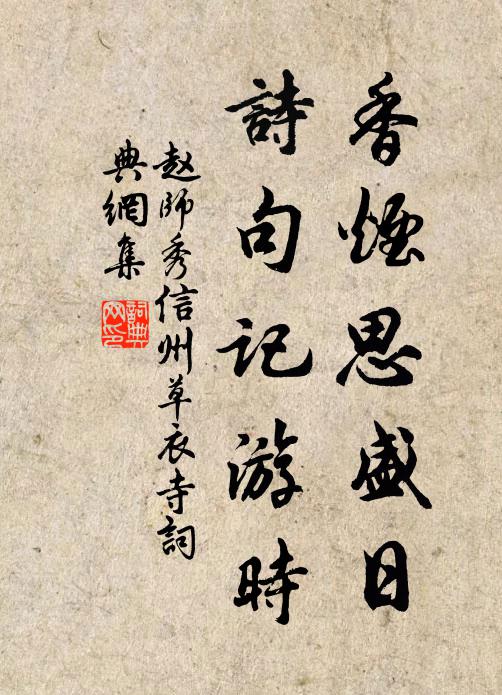 香煙思盛日
詩句記游時
赵師秀信州草衣寺詞
典網集
詞典
网印